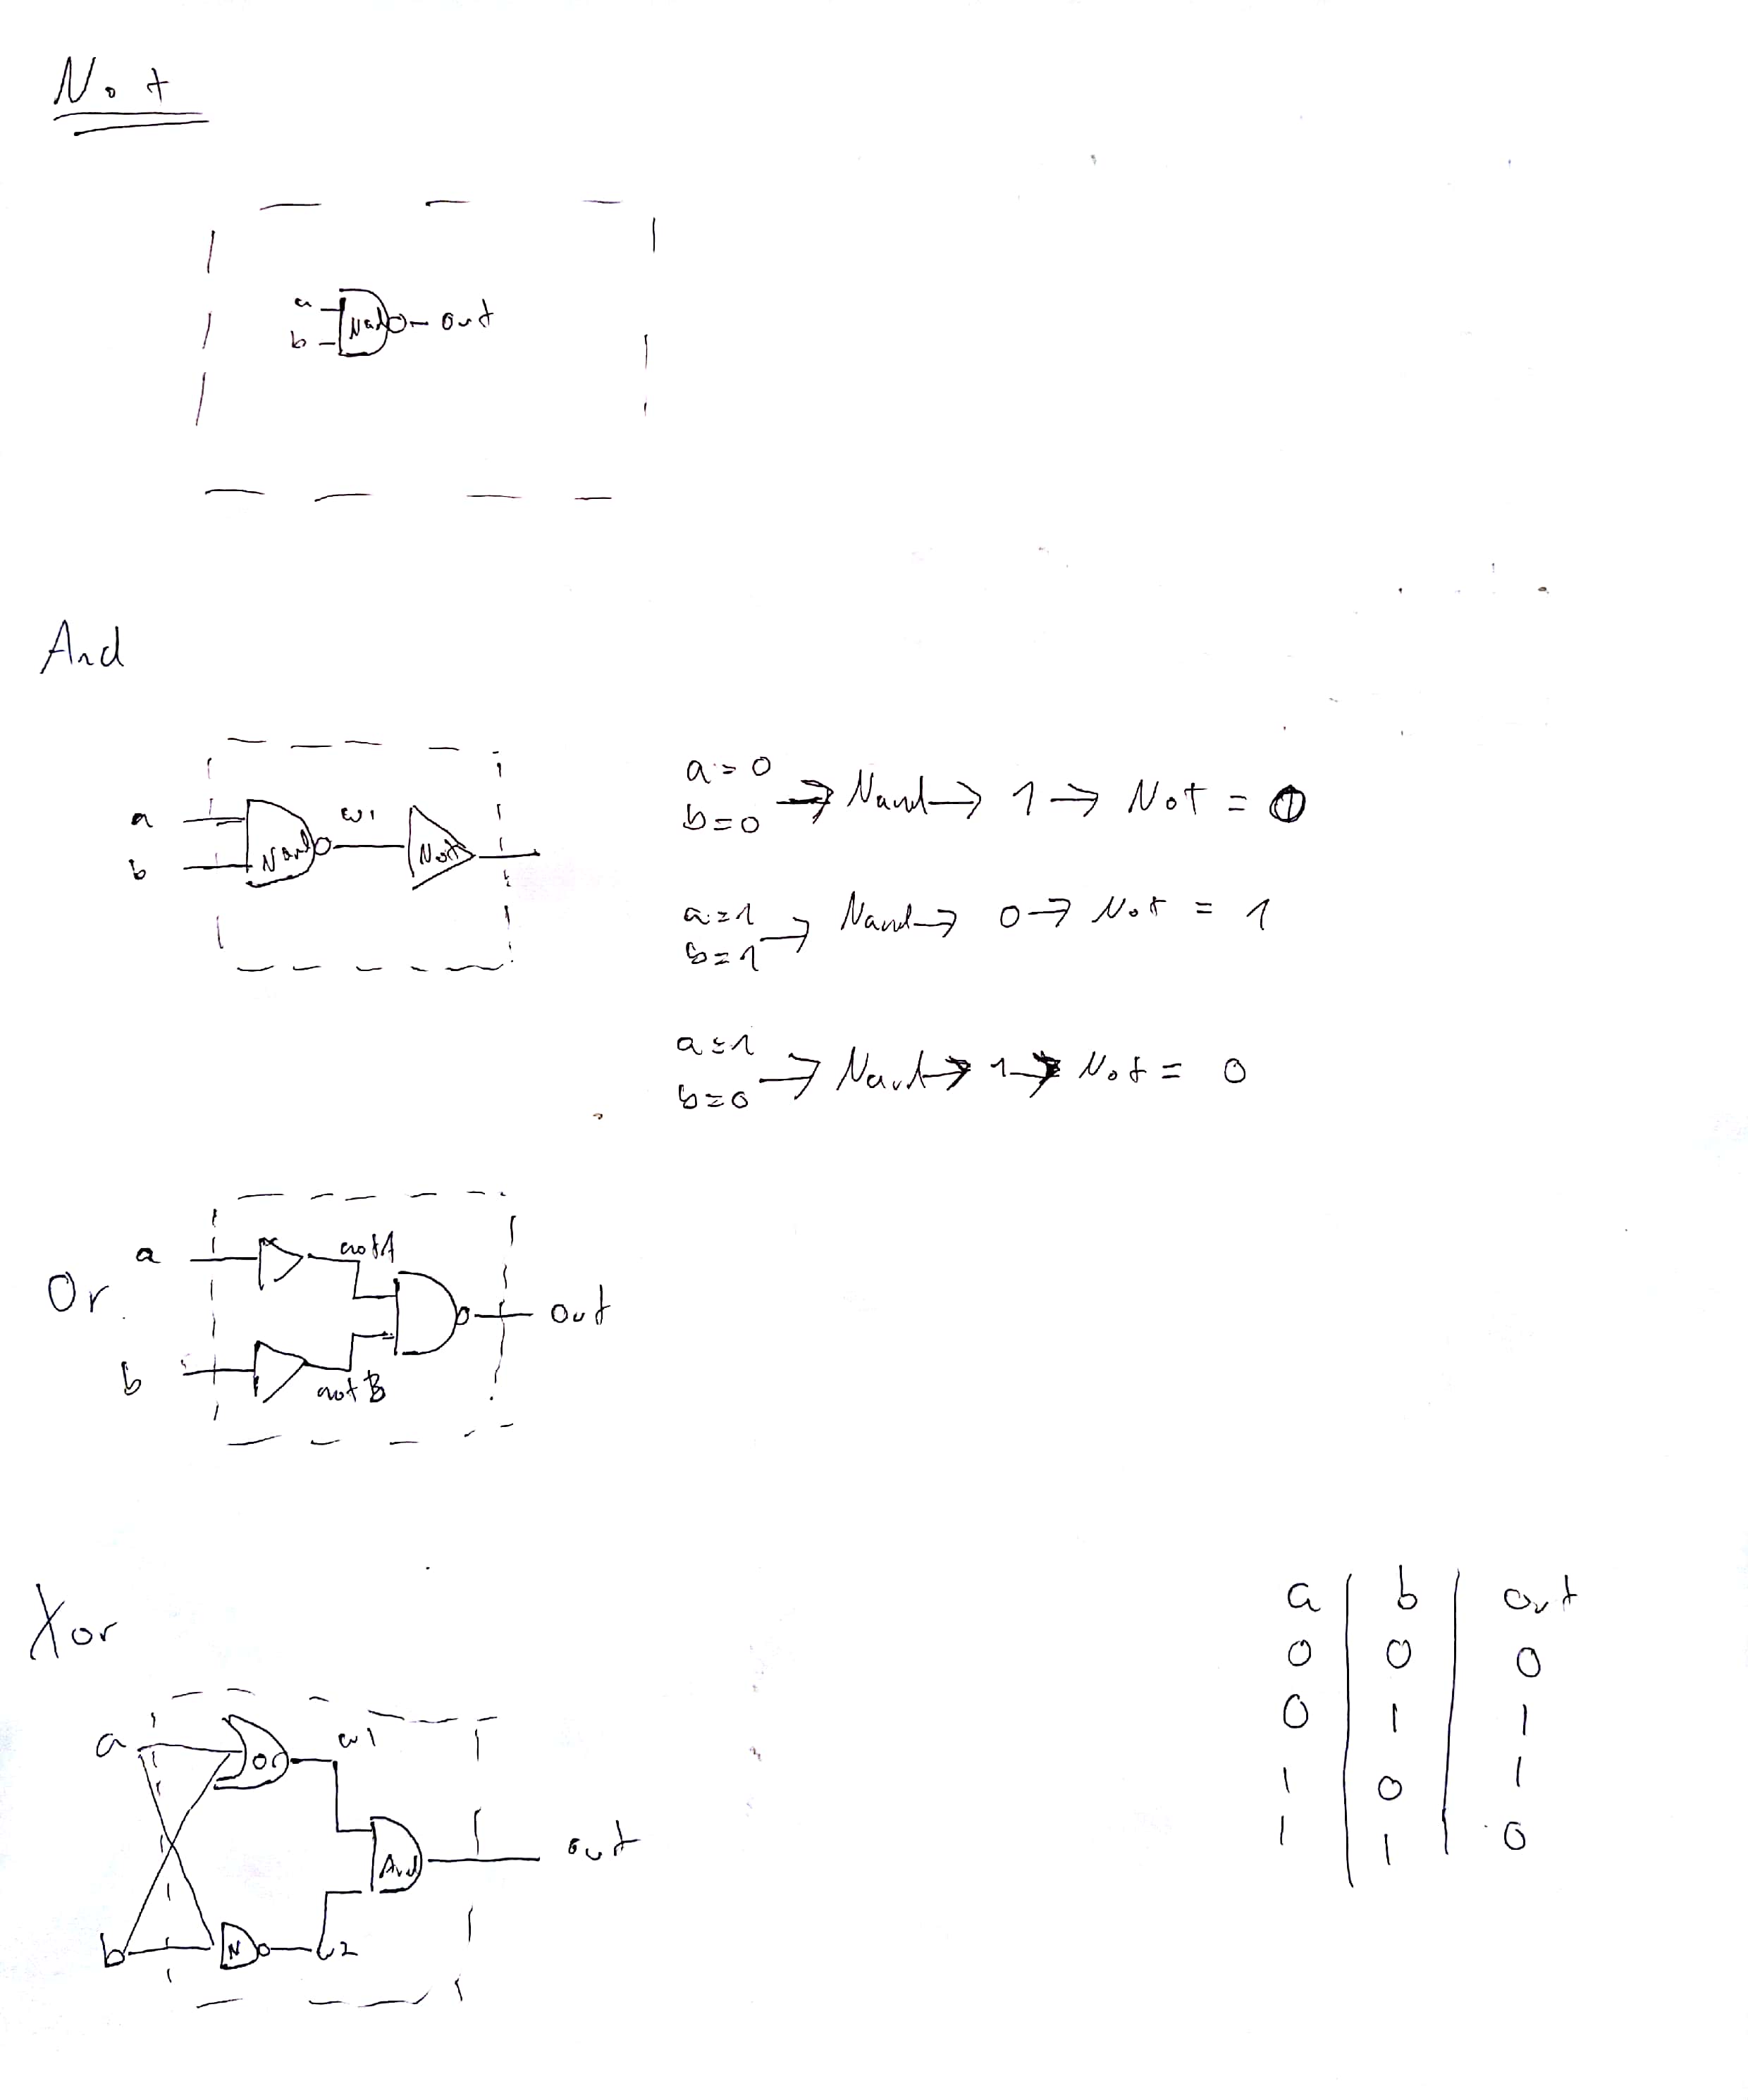 Not
a
Nand out
b
And
a w1
b Nand Not
a=0
b=0 → Nand → 1 → Not = 0
a=1
b=1 → Nand → 0 → Not = 1
a=1
b=0 → Nand → 1 → Not = 0
Or
a notA
out
b notB
Xor
a Or w1
And out
b N w2
a b out
0 0 0
0 1 1
1 0 1
1 1 0